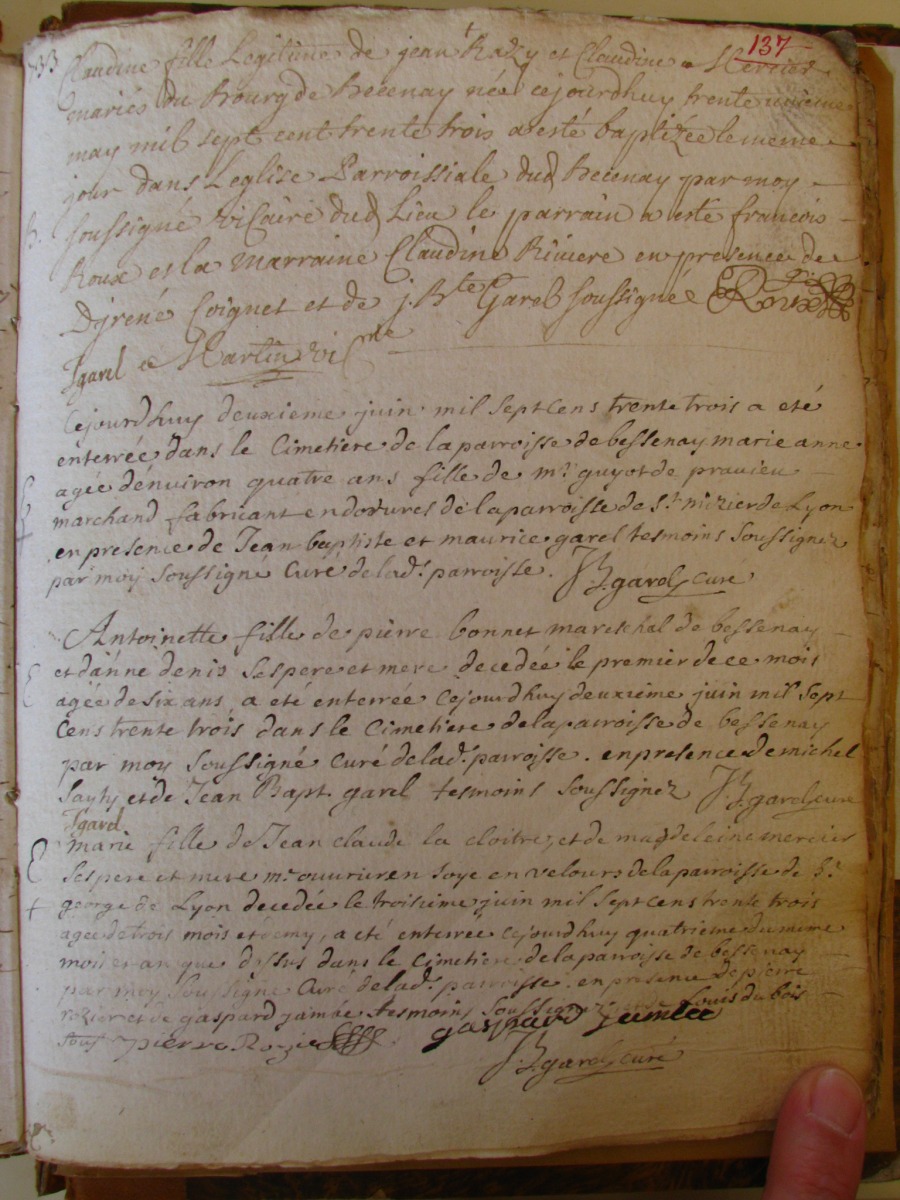 137
733
Claudine fille Legitime de jean Razy et Claudine Mercier
mariés du Bourg de Becenay née cejourdhuy trente unieme
may mil sept cent trente trois a esté baptizée le meme
jour dans Leglise Parroissiale dud Becenay par moy
B. soussigné vicaire dud Lieu le parrain a esté francois
Roux et la marraine Claudine Riviere en presence de
Coignet et de j. Bte Garel soussigné Roux
Jgarel Martin vic
cejourdhuy deuxieme juin mil sept cens trente trois a eté
enterrée dans le Cimetiere de la parroisse de bessenay marie anne
E agée d'environ quatre ans fille de mr. guyot de pravieu
marchand fabricant en dorures de la parroisse de St. nizier de Lyon
en presence de Jean baptiste et maurice garel tesmoins soussignez
par moy soussigné Curé de lad. parroisse. JB. garel curé
Antoinette fille de pierre bonnet mareschal de bessenay
E et d'anne denis ses pere et mere decedée le premier de ce mois
agée de six ans a eté enterrée cejourdhuy deuxieme juin mil sept
Cens trente trois dans le Cimetiere de la parroisse de bessenay
par moy soussigné Curé de lad. parroisse. en presence de michel
et de Jean Bapt. garel tesmoins soussignez JB. garel curé
Jgarel
E marie fille de Jean claude la cloitre, et de magdeleine mercier
ses pere et mere mr ouvrier en soye en velours de la parroisse de St.
+ george de Lyon decedée le troisieme juin mil sept cens trente trois
agée de trois mois et demy, a eté enterrée cejourdhuy quatrieme du meme
mois et an que dessus dans le Cimetiere de la parroisse de bessenay
par moy soussigné Curé de lad. parroisse. en presence de pierre
rozier et de gaspard jambe tesmoins soussignez et de Louis dubois
pierre Rozier gaspard jambe
JB. garel curé